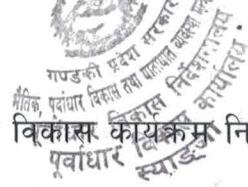 गण्डकी प्रदेश सरकार
भौतिक पूर्वाधार विकास तथा यातायात व्यवस्था
विकास निर्देशनालय
विकास कार्यक्रम नि
पूर्वाधार विकास कार्यालय
स्याङ्जा